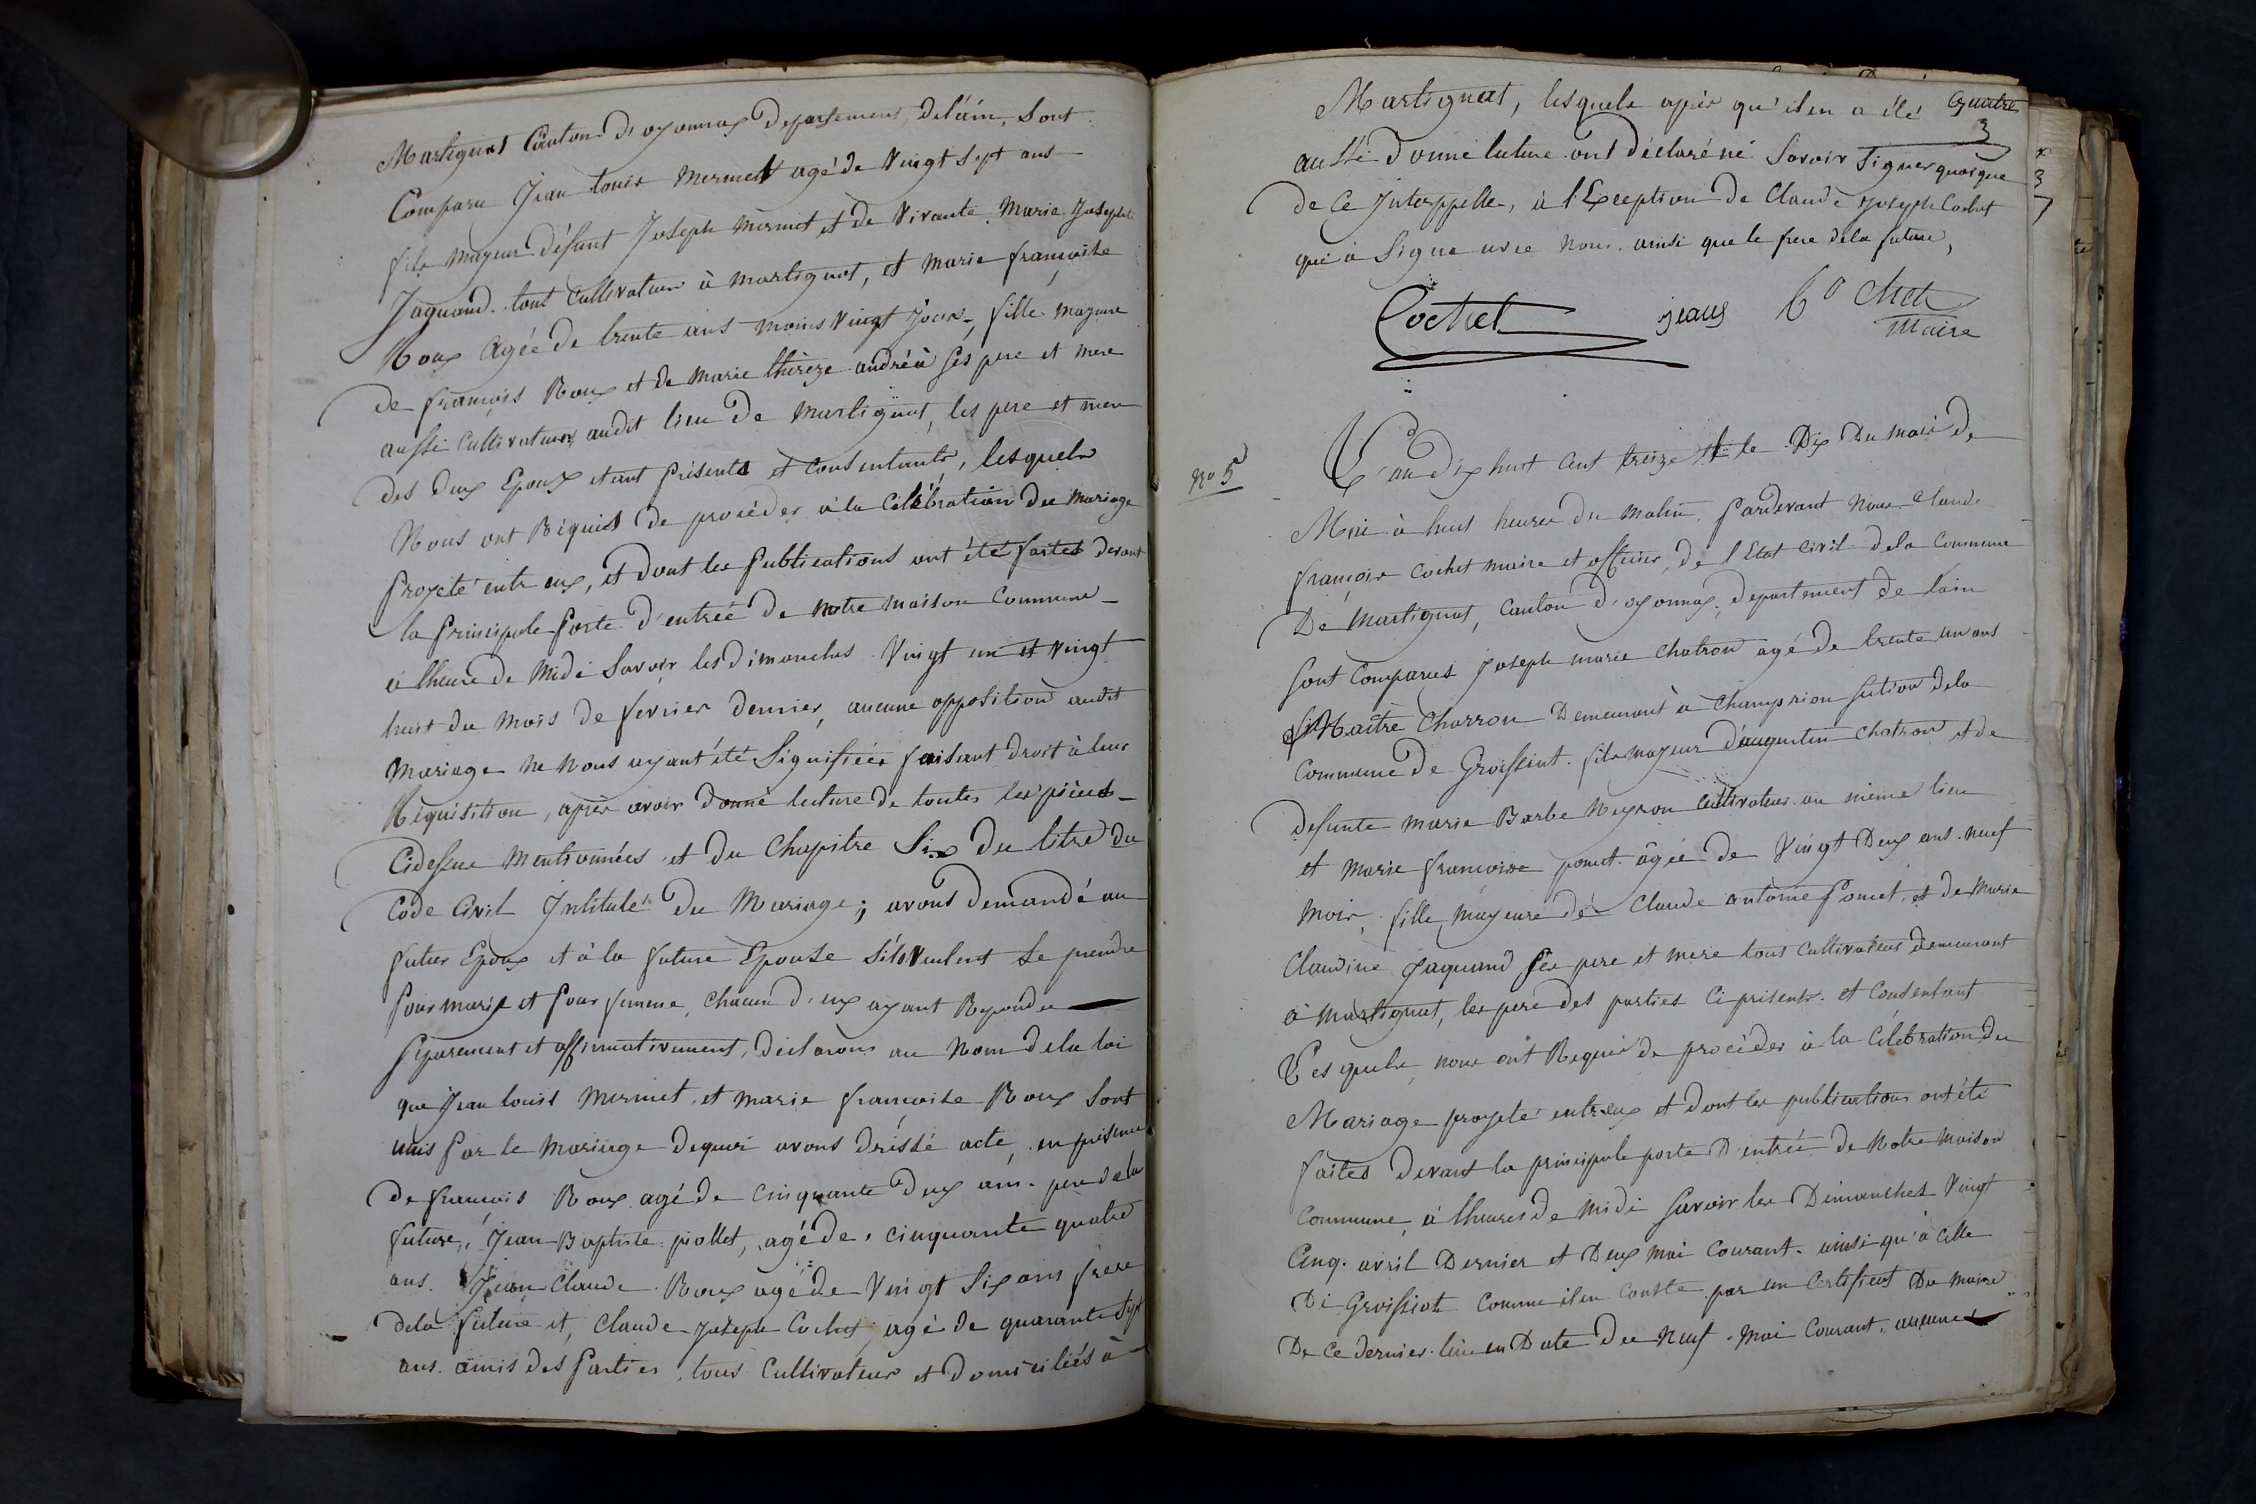 Martignat Canton d'oyonnax departement, Delain, Sont
Comparu Jean Louis Mermet agé de Vingt Sept ans
fils majeur défunt Joseph Mermet et de Vivante Marie Joseph
Jaquand tout Cultivateur à martignat, et Marie françoise
Roux Agée de trente ans moins Vingt Jours, fille mayeure
De françois Roux et de Marie thérèze andréà ses pere et mere
aussi Cultivateurs audit lieu De Martignat, les pere et mere
des deux Epoux etant présents et Consentants, lesquels
Nous ont Requist de procéder à la Célébration du Mariage
Proyeté entr eux, et dont les Publications ont été faites devant
la Principale Porte d'entrée De Notre Maison Commune
à lheure de Midi Savoir les Dimanches Vingt un et vingt
huit du Mois de fevrier dernier, aucune opposition audit
Mariage ne Nous ayant été Signifiée faisant Droit à leur
Réquisition, après avoir donné lecture de toutes les pièces
Cidessus Mentionnées et du Chapitre Six Du titre Du
Code Civil Intitulé Du Mariage; avons Demandé au
futur Epoux et à la future Epouse S'ils Veulent Se prendre
Pour Mari et Pour femme, chacun d'eux ayant Repondu
Séparement et affirmativement, déclarons au Nom dela loi
que Jean louis Mermet et Marie françoise Roux Sont
unis Par le Mariage dequoi avons dréssé acte, en présence
De francois Roux agé de Cinquante deux ans pere dela
future, Jean Baptiste piollet, agé de cinquante quatre
ans. Jean Claude Roux agé de Vingt Six ans frere
dela future et, Claude Joseph Cochet agé de quarante Sept
ans. amis des Parties, tous Cultivateur et domiciliés à
Martignat, lesquels après qu'il en a été
aussi Donné lecture ont déclaré ne Savoir Signer quoique
de Ce Interppellé, à l'Exception de Claude Joseph Cochet
qui a Signé avec Nous ainsi que le frere dela future,
Cochet
Maire
No 5
L'an dix huit Cent treize le Dix Du Mois De
Mai à huit heures du Matin, Pardevant Nous Claude
françois Cochet maire et officier, de l'Etat Civil dela Commune
De Martignat, Canton d'oyonnax, departement de lain
Sont Comparus Joseph marie Chatron agé de trente un ans
Maître Charron Demeurant à Champrion Section dela
Commune De Groissiat. fils mayeur d'augustin Chatron et de
defunte Marie Barbe Neyron Cultivateur au même lieu
et Marie françoise ponut agée de Vingt Deux ans neuf
Mois, fille, Mayeure de Claude antoine Ponut, et de Marie
Claudine Jaquand Ses pere et mere tous Cultivateurs demeurant
à Martignat, les pere des parties Ci présents et Consentant
Lesquels, nous ont Requis de procéder à la Célébration du
Mariage proyeté entr eux et dont les publications ont été
faites Devant la principale porte D'entrée de Notre Maison
Commune, à lheures de Midi Savoir les Dimanches Vingt
Cinq avril Dernier et Deux Mai Courant, ainsi qu'à Celle
De Groissiat Comme il en Conste par un Certificat Du Maire
De Ce dernier lieu en Date du Neuf Mai Courant, aucune